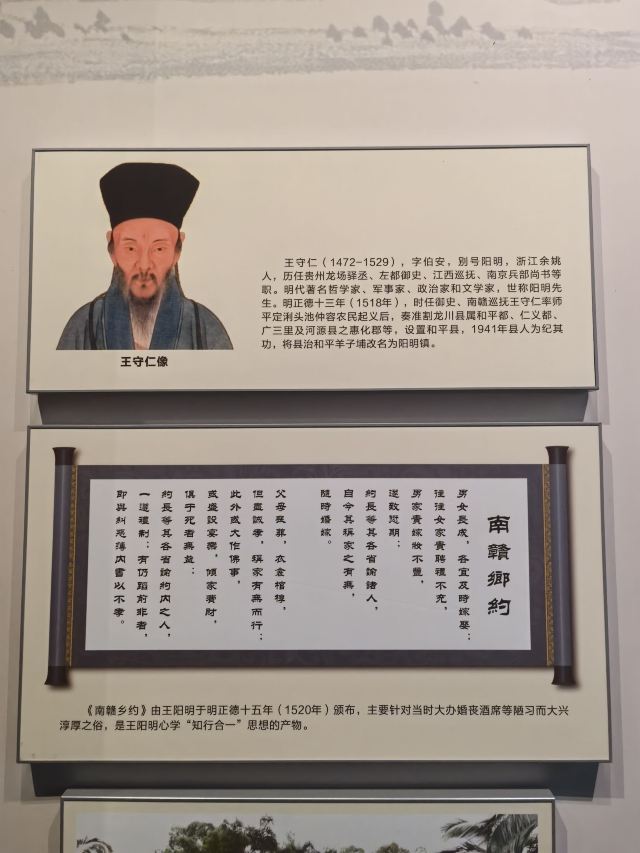 王守仁（1472-1529），字伯安，别号阳明，浙江余姚
人，历任贵州龙场驿丞、左都御史、江西巡抚、南京兵部尚书等
职。明代著名哲学家、军事家、政治家和文学家，世称阳明先
生。明正德十三年（1518年），时任御史、南赣巡抚王守仁率师
平定浰头池仲容农民起义后，奏准割龙川县属和平都、仁义都、
广三里及河源县之惠化郡等，设置和平县，1941年县人为纪其
功，将县治和平羊子埔改名为阳明镇。
王守仁像
南贛鄉約
男女長成，各宜及時嫁娶；
往往女家責聘禮不充，
男家責嫁妝不豐，
遂致愆期；
約長等其各省諭諸人，
自今其稱家之有無，
隨時婚嫁。
父母喪葬，衣衾棺槨，
但盡誠孝，稱家有無而行；
此外或大作佛事，
或盛設宴樂，傾家費財，
俱于死者無益；
約長等其各省諭約內之人，
一遵禮制；有仍蹈前非者，
即與糾惡簿內書以不孝。
《南赣乡约》由王阳明于明正德十五年（1520年）颁布，主要针对当时大办婚丧酒席等陋习而大兴
淳厚之俗，是王阳明心学“知行合一”思想的产物。